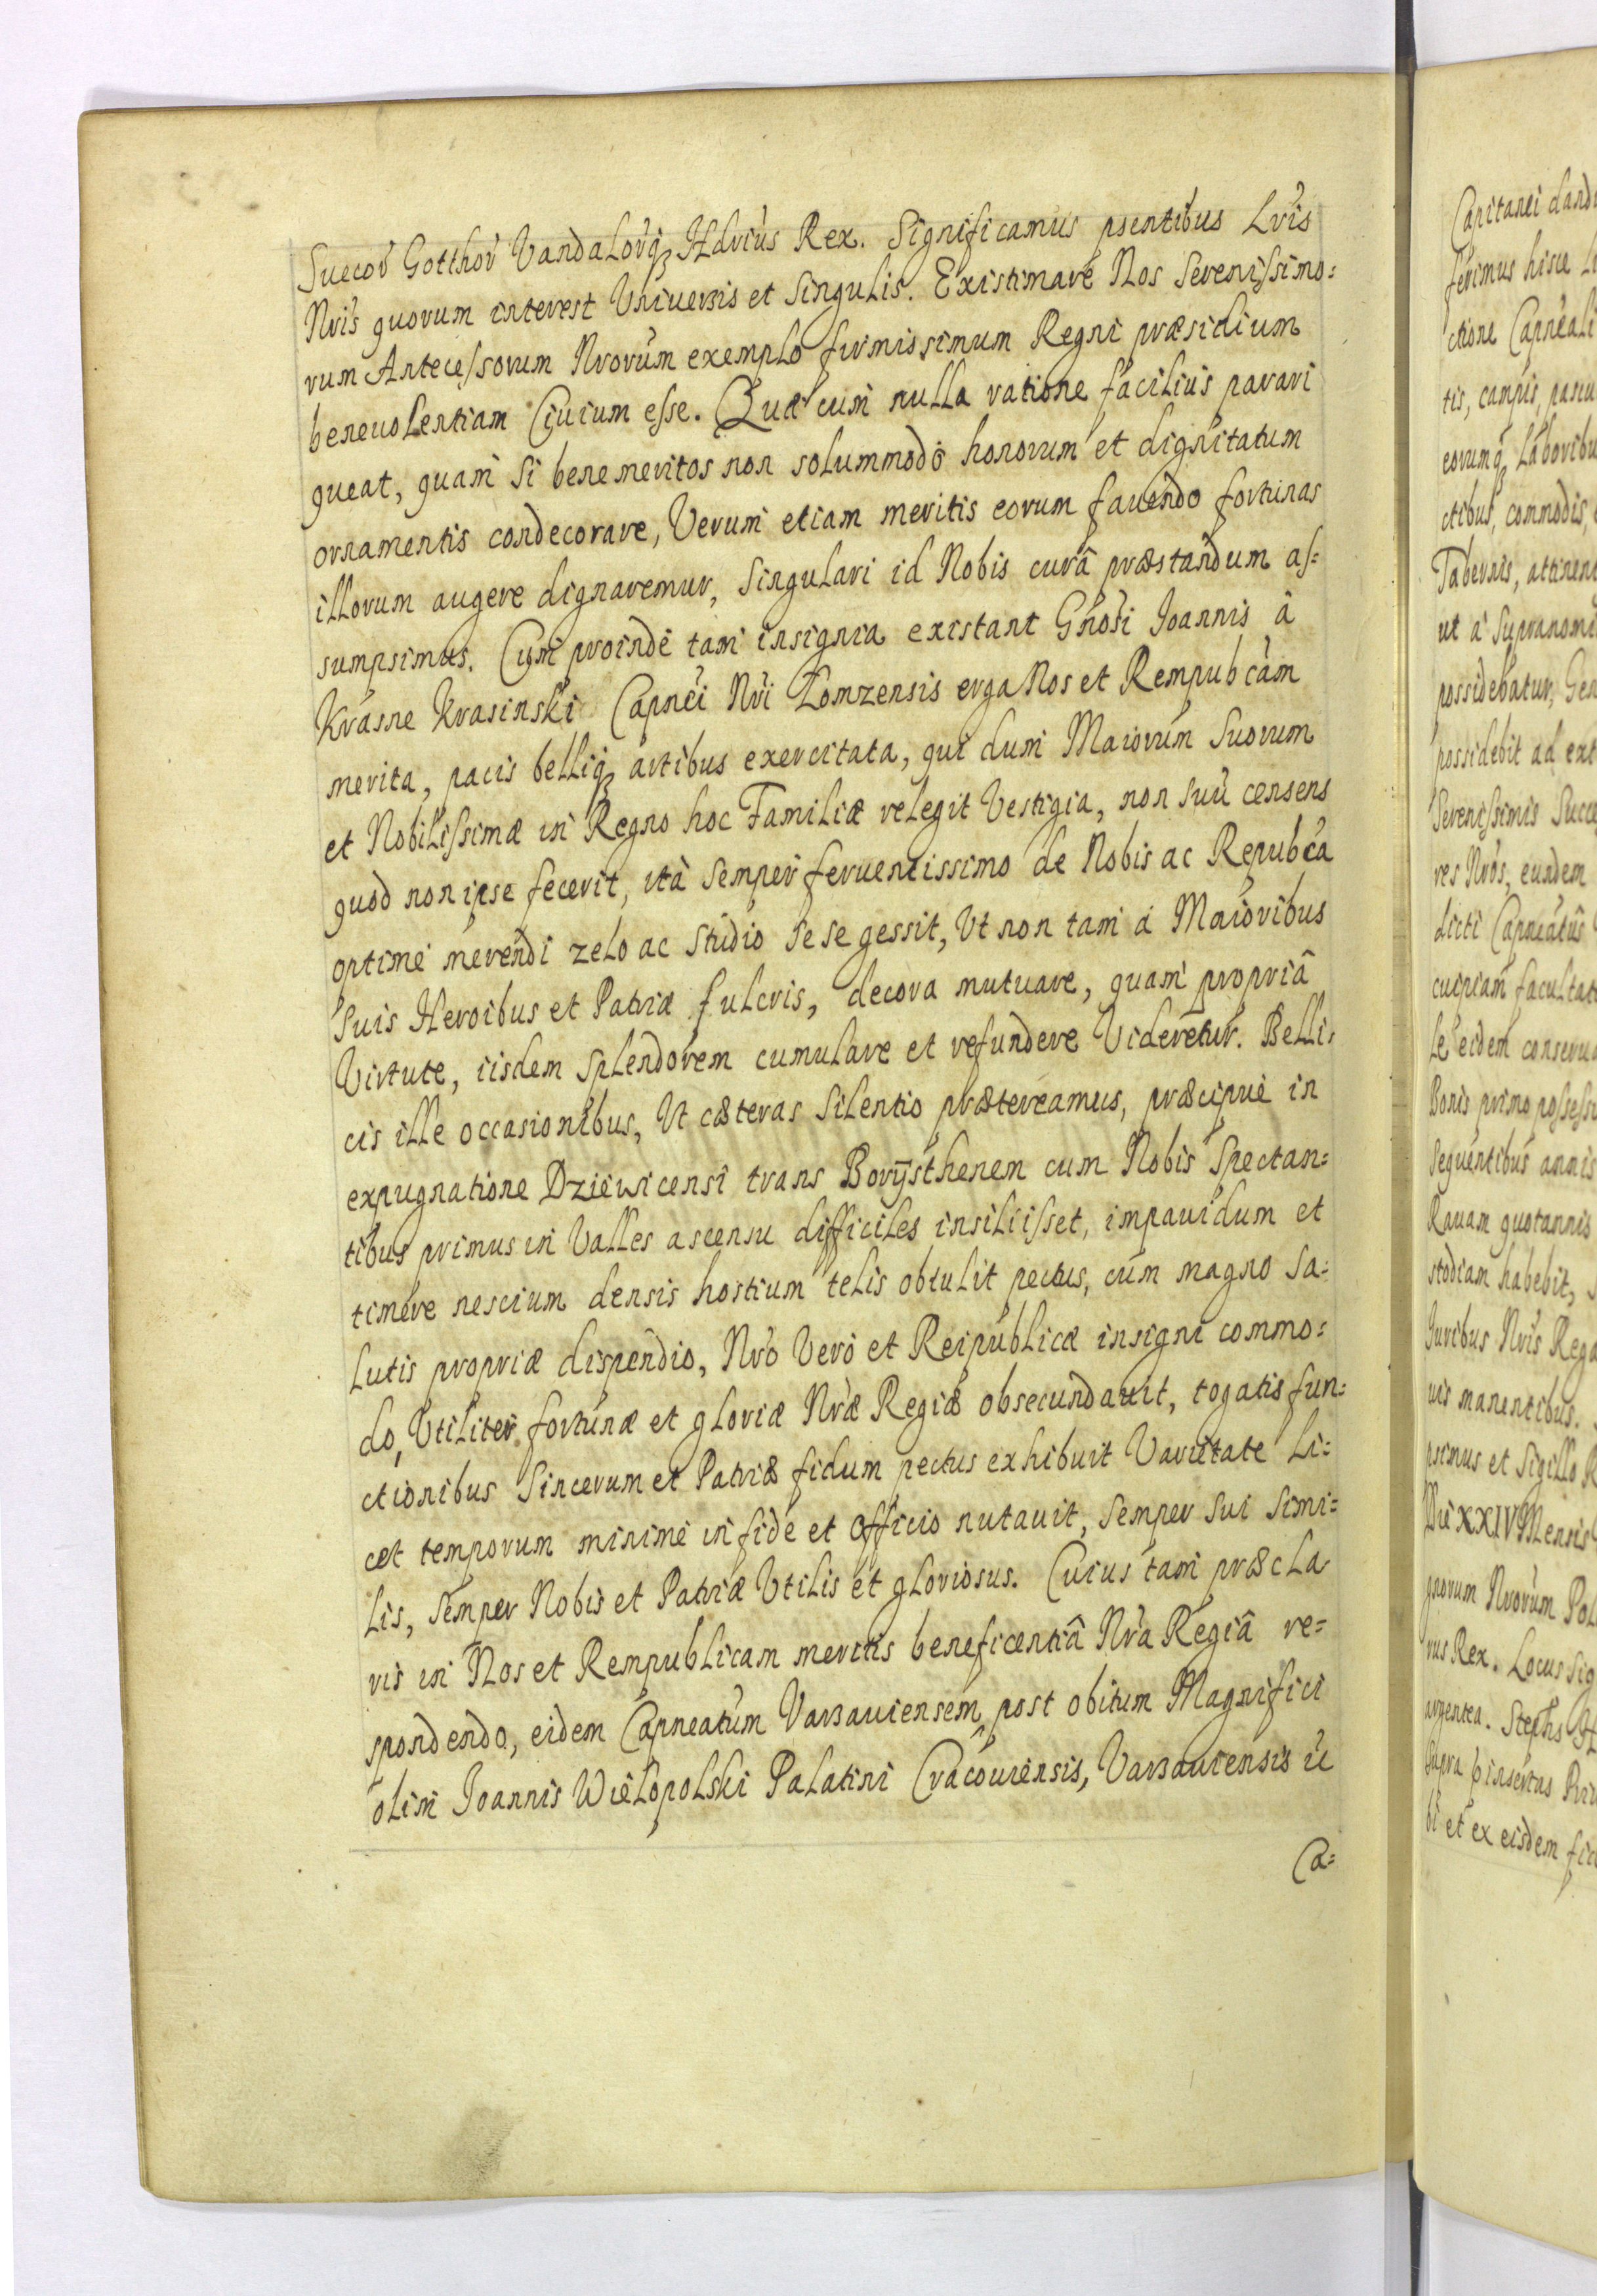 Suecoŕ Gotthoŕ Vandaloŕq́ꝫ Hdriús Rex. Significamus psentibus Lrís
Nrís quorum interest Vniuersis et Singulis. Existimare Nos Serenissimo=
rum Antecessorum Nrorúm exemplo firmissimum Regni præsidium
beneuolentiam Ciuium esse. Quæ cum nulla ratione facilius parari
queat, quam si benemeritos non solummodò honorum et dignitatum
ornamentis condecorare, Verum etiam meritis eorum fauendo fortunas
illorum augere dignaremur, Singulari id Nobis curâ præstandum as=
sumpsimus. Cum proinde tam insignia existant Gnósi Joannis à
Krasne Krasinski Capnéi Nrí Łomzensis erga Nos et Rempubcám
merita, pacis belliq́ꝫ artibus exercitata, qui dum Maiorum Suorum
et Nobilissimæ in Regno hoc Familiæ relegit Vestigia, non suú censens
quod non ipse fecerit, ità semper feruentissimo de Nobis ac Repubcá
optime merendi zelo ac studio sese gessit, Vt non tam à Maioribus
Suis Heroibus et Patriæ fulcris, decora mutuare, quam propriâ
Virtute, iisdem splendorem cumulare et refundere Videretur. Belli=
cis ille occasionibus, Vt cæteras Silentio prætereamus, præcipuè in
expugnatione Dziewicensi trans Borÿsthenem cum Nobis Spectan=
tibus primus in Valles ascensu difficiles insiliisset, impauidum et
timere nescium densis hostium telis obtulit pectus, cum magno Sa=
lutis propriæ dispendio, Nró Verò et Reipublicæ insigni commo=
do, Vtiliter fortunæ et gloriæ Nræ Regiæ obsecundauit, togatis fun=
ctionibus Sincerum et Patriæ fidum pectus exhibuit Varietate li=
cet temporum minimè in fide et officio nutauit, Semper sui Simi=
lis, Semper Nobis et Patriæ Vtilis et gloriosus. Cuius tam præcla
ris in Nos et Rempublicam meritis beneficentiâ Nrà Regiâ re=
spondendo, eidem Capneatúm Varsauiensem post obitum Magnifici
olim Joannis Wielopolski Palatini Cracouiensis, Varsauiensis ú
Ca=
Capitanei
ferimus hisce
ctione
tis, campis,
eorumq́ꝫ
ctibus, commodis,
Tabernis,
ut à
possidebatur,
possidebit ad
Serenissimis
res Nrós, eundem
dicti
cuipiam
le eidem
Bonis primo
Sequentibus annis
Rauam quotannis
stodiam habebit,
Juribus Nrís
uis manentibus.
psimus et Sigillo
Die XXIV Mensis
gnorum Nrorúm
rus Rex. Locus
argentea.
Supra
bi et ex eisdem